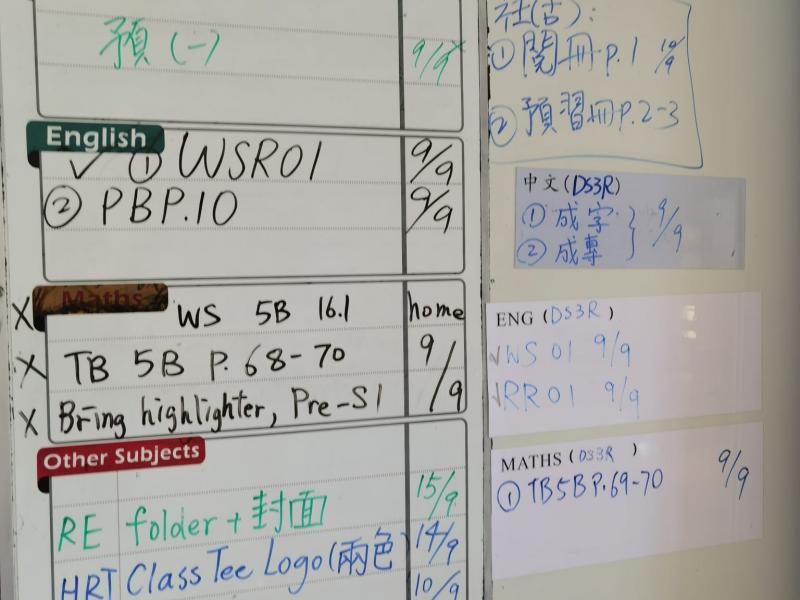 預(一) 9/9
English
✓ ① WSR01 9/9
② PBP.10 9/9
Maths
X WS 5B 16.1 home
X TB 5B P. 68-70 9/9
X Bring highlighter, Pre-S1
Other Subjects
RE folder + 封面 15/9
HRT Class Tee Logo (兩色) 14/9
10/9
社(古):
① 閱冊 p.1 10/9
② 預習冊 p.2-3
中文(DS3R)
① 成字 } 9/9
② 成專
ENG (DS3R)
✓WS 01 9/9
✓RR01 9/9
MATHS (DS3R) 9/9
① TB5B P.69-70